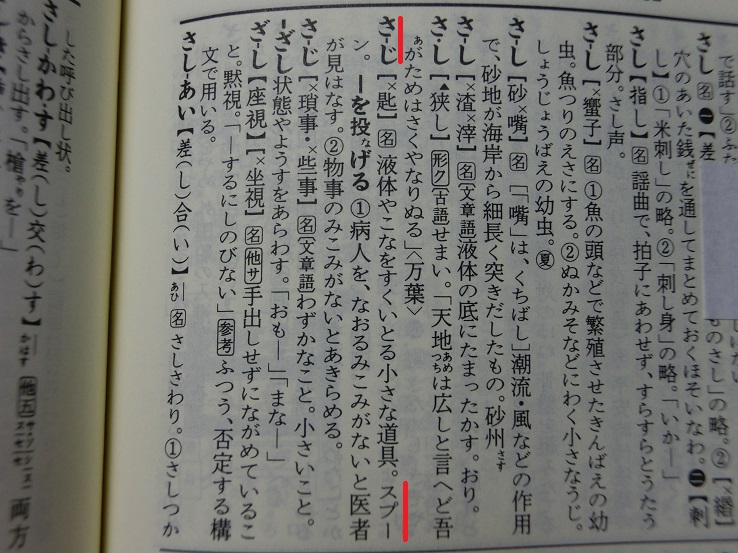 で話す」②ふた
さし 名 ㊀【差
穴のあいた銭ぜにを通してまとめておくほそいなわ。㊁【刺
し】①「米刺し」の略。②「刺し身」の略。「いか―」
ものさし」の略。②【×緡】
さし【指し】名 謡曲で、拍子にあわせず、すらすらとうたう
部分。さし声。
さ‐し【×蠁子】名 ①魚の頭などで繁殖させたきんばえの幼
虫。魚つりのえさにする。②ぬかみそなどにわく小さなうじ。
しょうじょうばえの幼虫。夏
さ‐し【砂×嘴】名 「「嘴」は、くちばし」潮流・風などの作用
で、砂地が海岸から細長く突きだしたもの。砂州さす
さ‐し【×渣×滓】名 文章語 液体の底にたまったかす。おり。
さ‐し【▲狭し】形ク 古語 せまい。「天地あめつちは広しと言へど吾
あがためはさくやなりぬる」〈万葉〉
さ‐じ【×匙】名 液体やこなをすくいとる小さな道具。スプー
ン。―を投なげる ①病人を、なおるみこみがないと医者
が見はなす。②物事のみこみがないとあきらめる。
さ‐じ【×瑣事・×些事】名 文章語 わずかなこと。小さいこと。
‐ざし 状態やようすをあらわす。「おも―」「まな―」
ざ‐し【座視】【×坐視】名 他サ 手出しせずにながめているこ
と。黙視。「―するにしのびない」参考 ふつう、否定する構
文で用いる。
さし‐あい【差(し)合(い)】―あひ 名 さしさわり。①さしつか
した呼び出し状。
さしかわす【差(し)交(わ)す】―かはす 他五 サ・シ・ス・セ・ソ 両方
からさし出す。「槍やりを―」